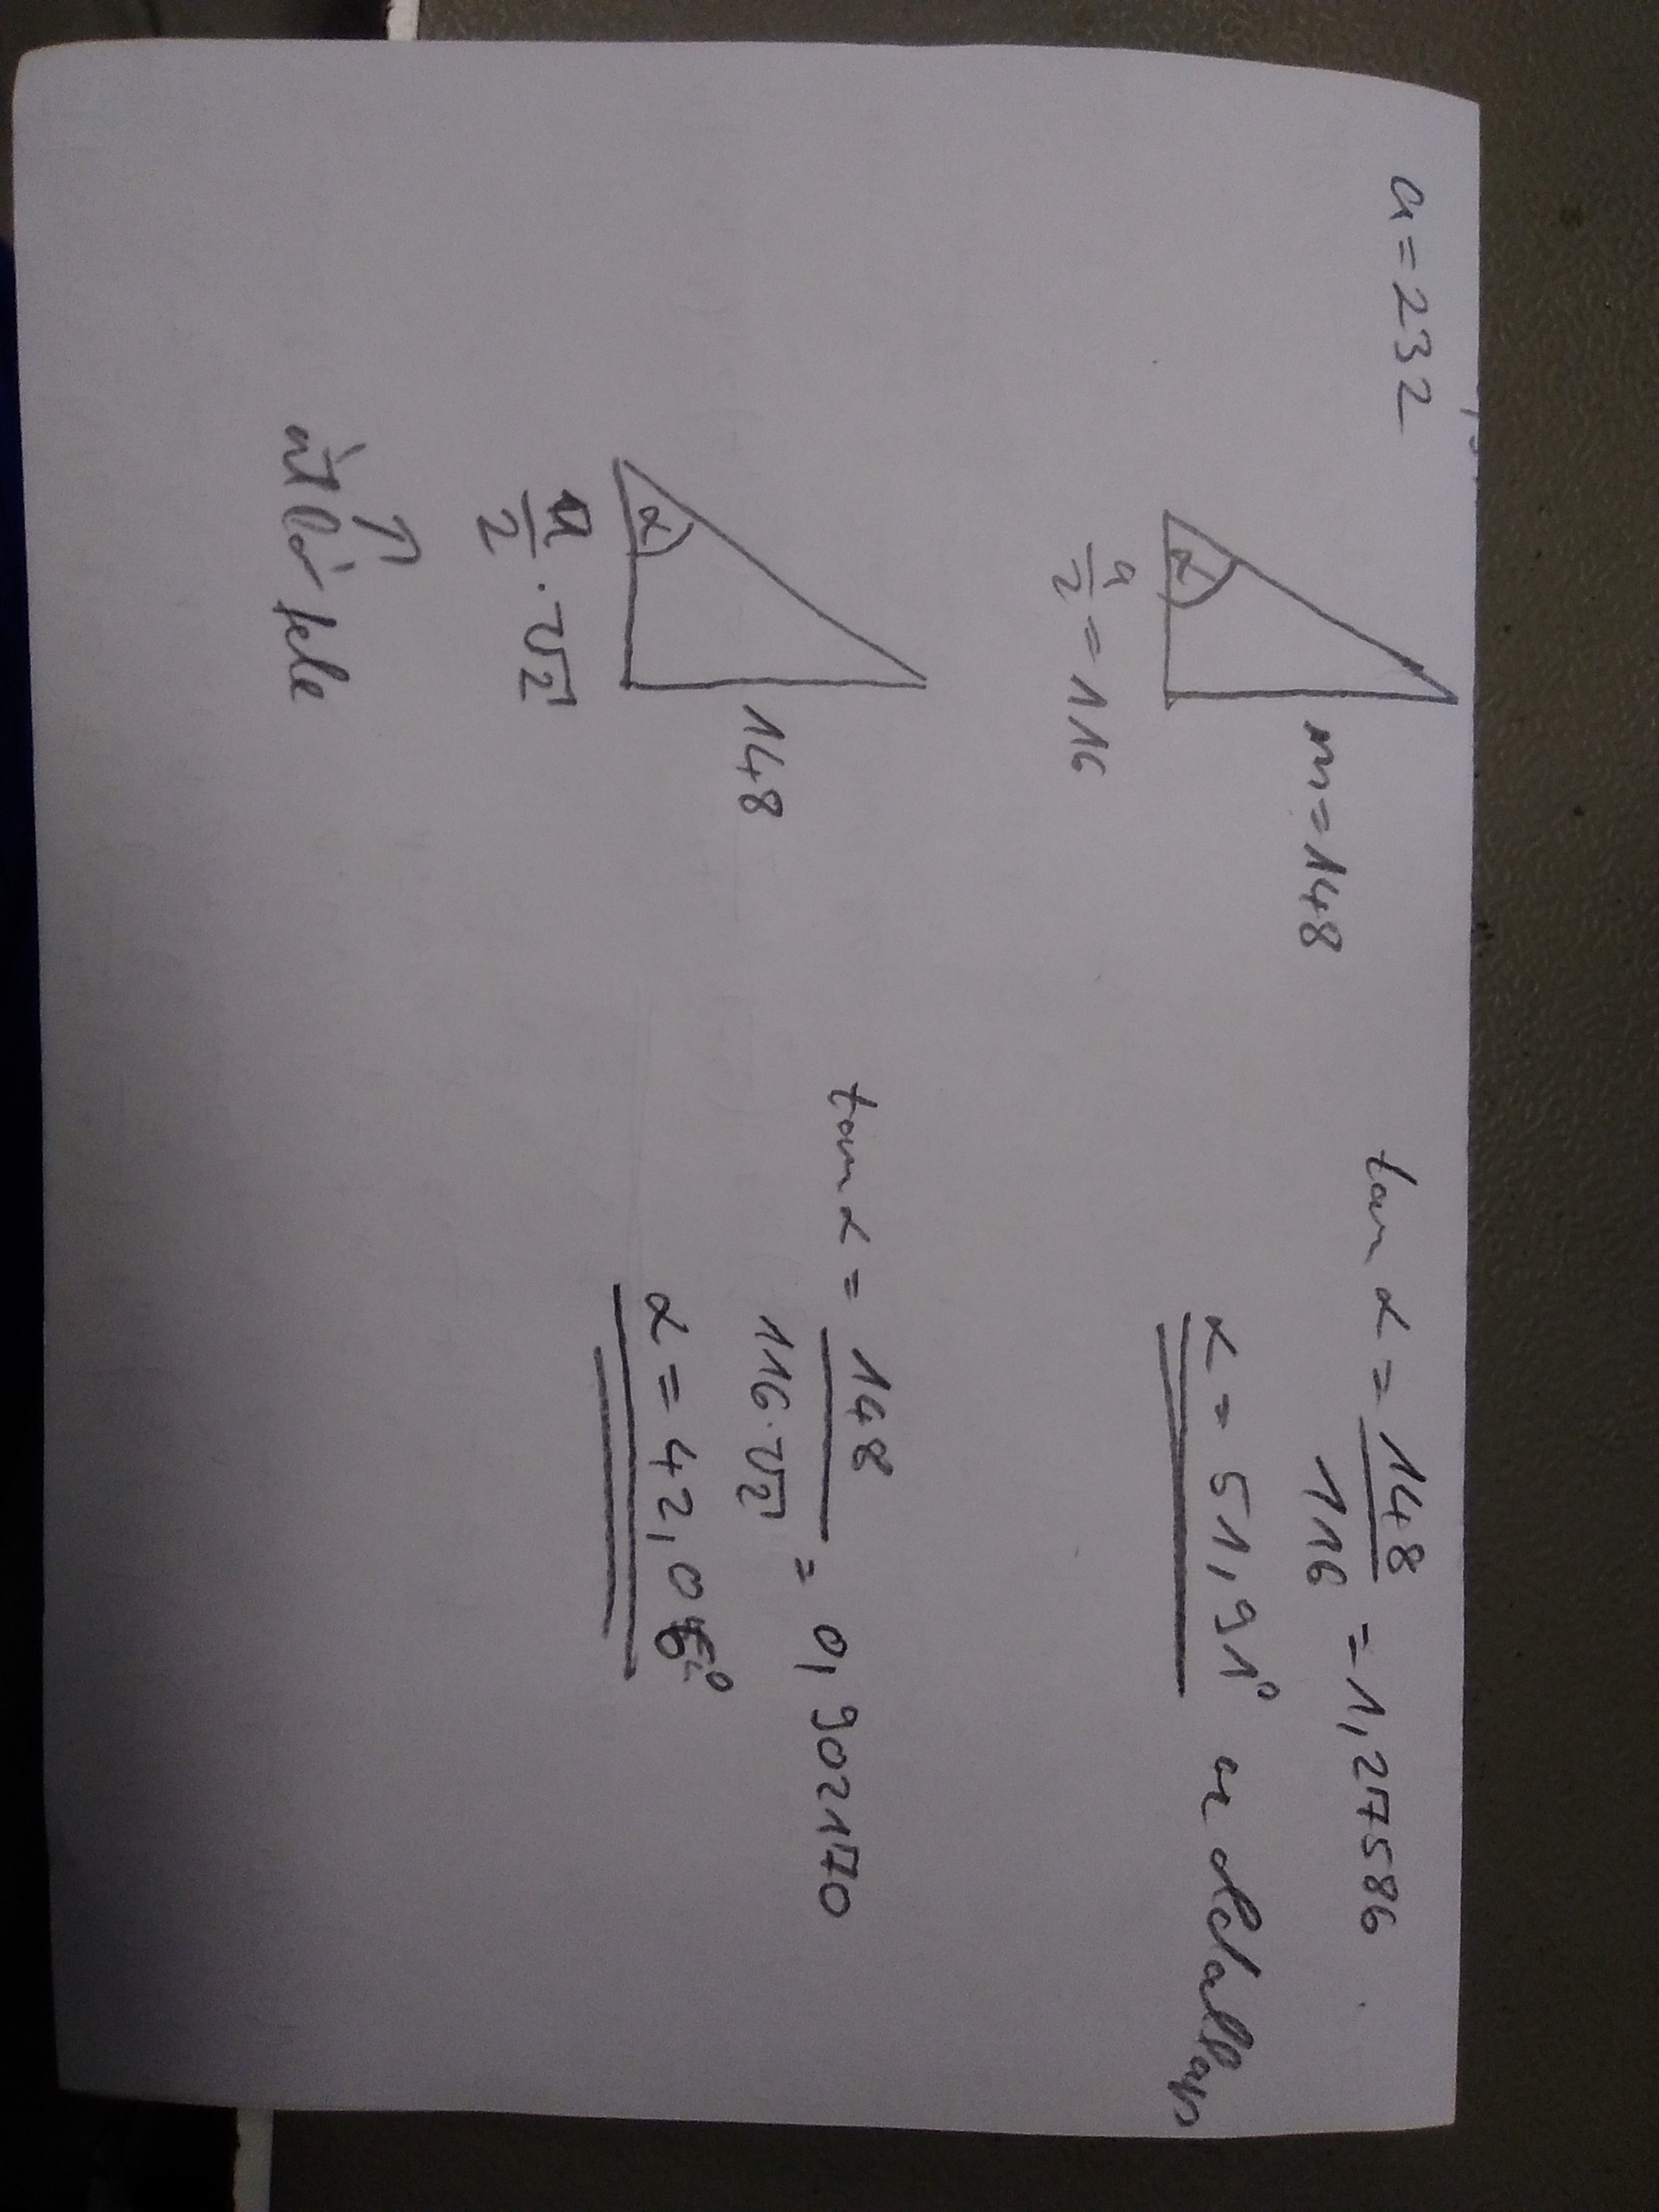 a = 232
m = 148
α
a/2 = 116
tan α = 148/116 = 1,27586
α = 51,91° az oldallap
α
148
a/2 · √2
↑
átló fele
tan α = 148/(116·√2) = 0,902170
α = 42,06°